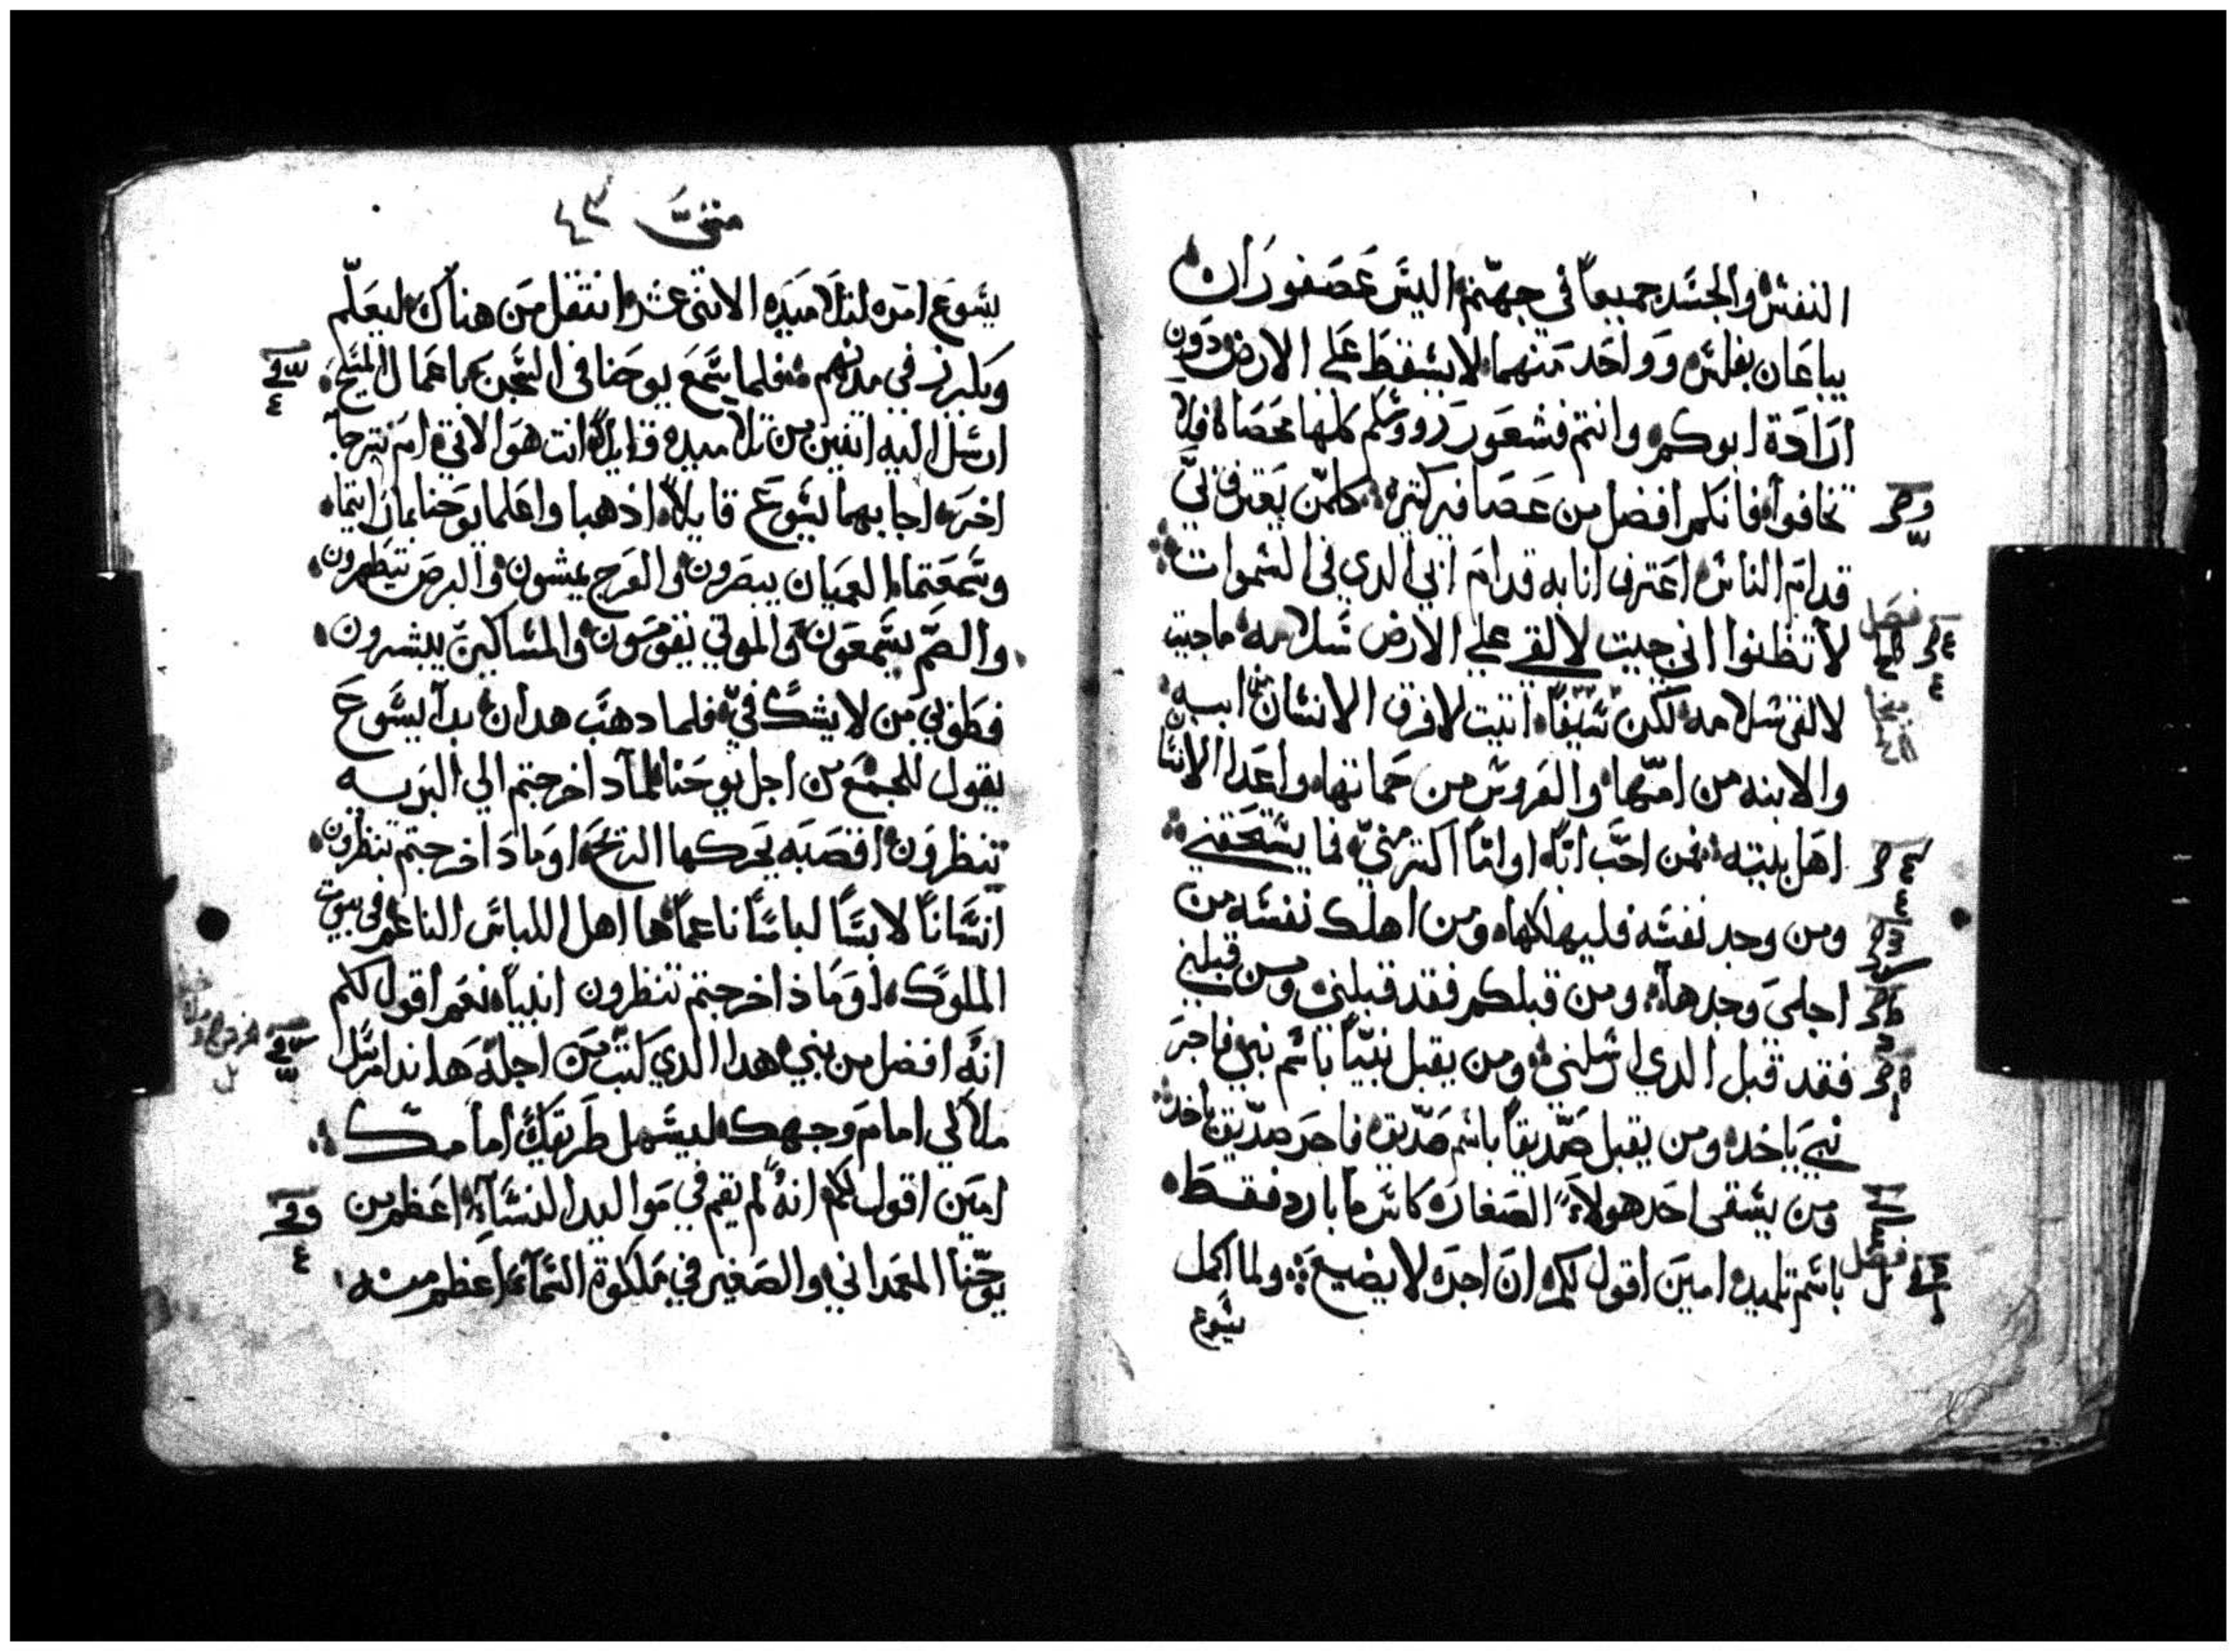 النفس والجسد جميعاً في جهنم اليس عصفوران
يباعان بفلس وواحد منهما لا يسقط على الارض دون
ارادة ابوكم وانتم فشعور رووسكم كلها محصاه فلا
تخافوا فانكم افضل من عصافير كتيره كلمن يعترف بي
قدام الناس اعترف انا به قدام ابي الدي في السموات
لا تظنوا اني جيت لالقي علي الارض سلامه ما جيت
لالقى سلامه لكن سيفاً اتيت لافرق الانسان من ابيه
والابنه من امها والعروس من حماتها واعدا الانسان
اهل بيته فمن احب اباً او اماً اكتر مني فما يستحقني
ومن وجد نفسه فليهلكها ومن اهلك نفسه من
اجلي وجدها ومن قبلكم فقد قبلني ومن قبلني
فقد قبل الدي ارسلني ومن يقبل نبياً باسم نبي فاجر
نبي ياخده ومن يقبل صديقاً باسم صديق فاجر صديق ياخد
ومن يسقى احد هولاء الصغار كاس ما بارد فقط
باسم تلميد امين اقول لكم ان اجره لا يضيع ولما اكمل
يسوع
فصل
فصل
متى ٤٣
يسوع امره لتلاميده الاتنى عشر انتقل من هناك ليعلم
ويكرز في مدنهم فلما سمع يوحنا في السجن باعمال المسيح
ارسل اليه اتنين من تلاميده قايلاً انت هو الاتي ام نترجا
اخر اجابهما يسوع قايلاً ادهبا واعلما يوحنا بما رايتما
وسمعتما العميان يبصرون والعرج يمشون والبرص يتطهرون
والصم يسمعون والموتي يقومون والمساكين يبشرون
فطوبي من لا يشك في فلما دهب هدان بدا يسوع
يقول للجمع من اجل يوحنا لمادا خرجتم الي البريه
تنظرون اقصبه يحركها الريح او مادا خرجتم تنظرون
انساناً لابساً لباساً ناعماً ها اهل اللباس الناعم في بيوت
الملوك او ماذا خرجتم تنظرون انبيا نعم اقول لكم
انه افضل من نبي هدا الدي كتب من اجله هاندا مرسل
ملاكي امام وجهك ليسهل طريقك امامك
امين اقول لكم انه لم يقم في مواليد النساء اعظم من
يوحنا المعمداني والصغير في ملكوة السماء اعظم منه